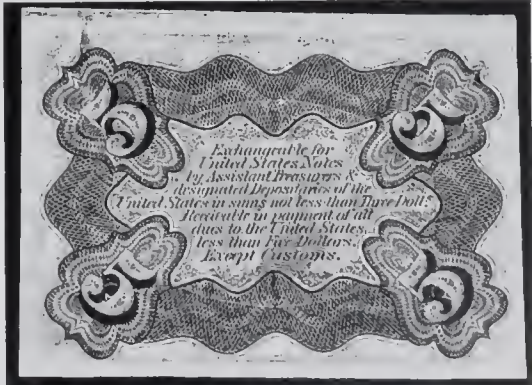 5 5
Exchangeable for
United States Notes
by Assistant Treasurers &
designated Depositaries of the
United States in sums not less than Three Doll's.
Receivable in payment of all
dues to the United States
less than Five Dollars.
Except Customs.
5 5